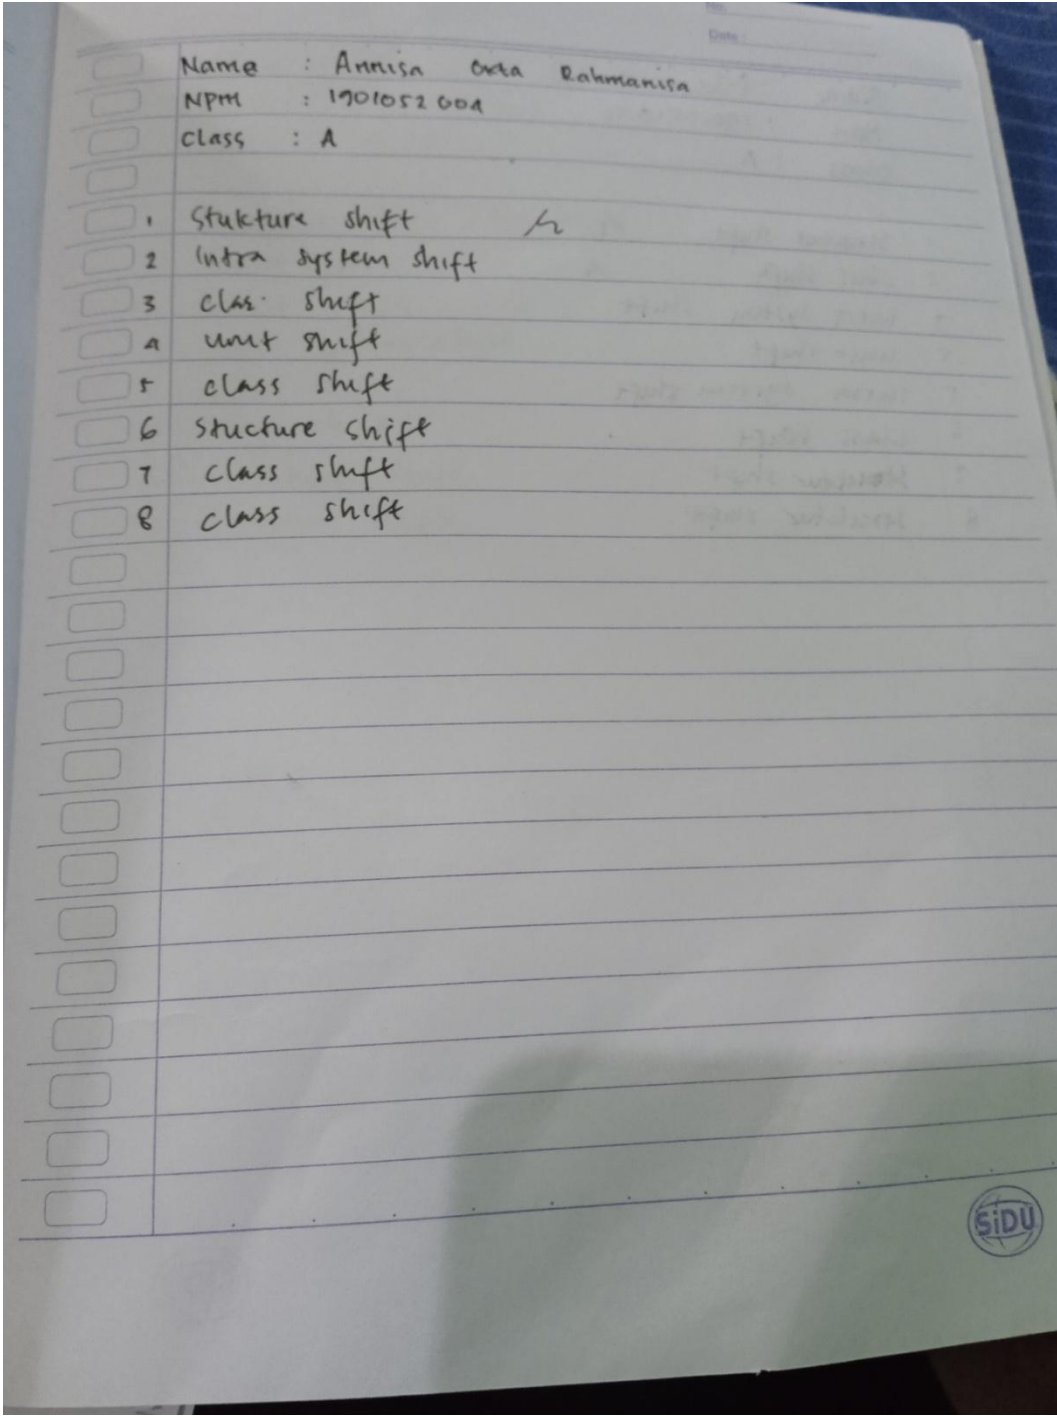 No.
Date :
Name : Annisa Okta Rahmanisa
NPM : 1901052004
Class : A
1 Stukture shift
2 Intra system shift
3 clas. shift
4 unit shift
5 class shift
6 stucture shift
7 class shift
8 class shift
SiDU